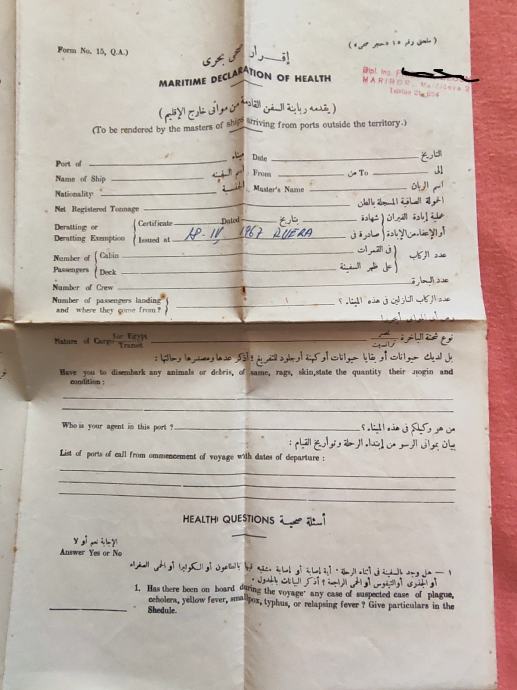 Form No. 15, Q.A.) (ملحق رقم ١٥ «حجر صحى»)
إقـرار صحى بحرى
MARITIME DECLARATION OF HEALTH
Dipl. Ing.
MARIBOR, 2
(يقدمه ربابنة السفن القادمة من موانى خارج الإقليم)
(To be rendered by the masters of ships arriving from ports outside the territory.)
Port of ميناء Date التاريخ
Name of Ship اسم السفينه From من To إلى
Nationality الجنسية Master's Name اسم الربان
Net Registered Tonnage الحمولة الصافية المسجلة بالطن
Deratting or Certificate Dated بتاريخ شهادة عملية إبادة الفيران
Deratting Exemption Issued at 18-IV. 1967 RIJEKA صادرة فى أو الإعفاء من الإبادة
Number of Passengers Cabin فى القمرات عدد الركاب
Deck على ظهر السفينة
Number of Crew عدد البحارة
Number of passengers landing and where they come from? عدد الركاب النازلين فى هذه الميناء ؟
Nature of Cargo for Egypt لمصر نوع شحنة الباخرة
Transit ترانسيت
بل لديك حيوانات أو بقايا حيوانات أو كهنة أو جلود للتفريغ ؟ أذكر عدها ومصدرها وحالتها :
Have you to disembark any animals or debris, of same, rags, skin,state the quantity their origin and
condition :
Who is your agent in this port ? من هو وكيلكم فى هذه الميناء؟
بيان بموانى الرسو من إبتداء الرحلة وتواريخ القيام :
List of ports of call from ommencement of voyage with dates of departure :
HEALTH QUESTIONS أسئلة صحية
الإجابة نعم أو لا
Answer Yes or No
١ — هل وجد بالسفينة فى أثناء الرحلة أية إصابة أو إصابة مشتبه فيها بالطاعون أو الكوليرا أو الحمى الصفراء
أو الجدرى أو التيفوس أو الحمى الراجعة ؟ أذكر البيانات بالجدول.
1. Has there been on board during the voyage any case of suspected case of plague,
cholera, yellow fever, smallpox, typhus, or relapsing fever ? Give particulars in the
Shedule.